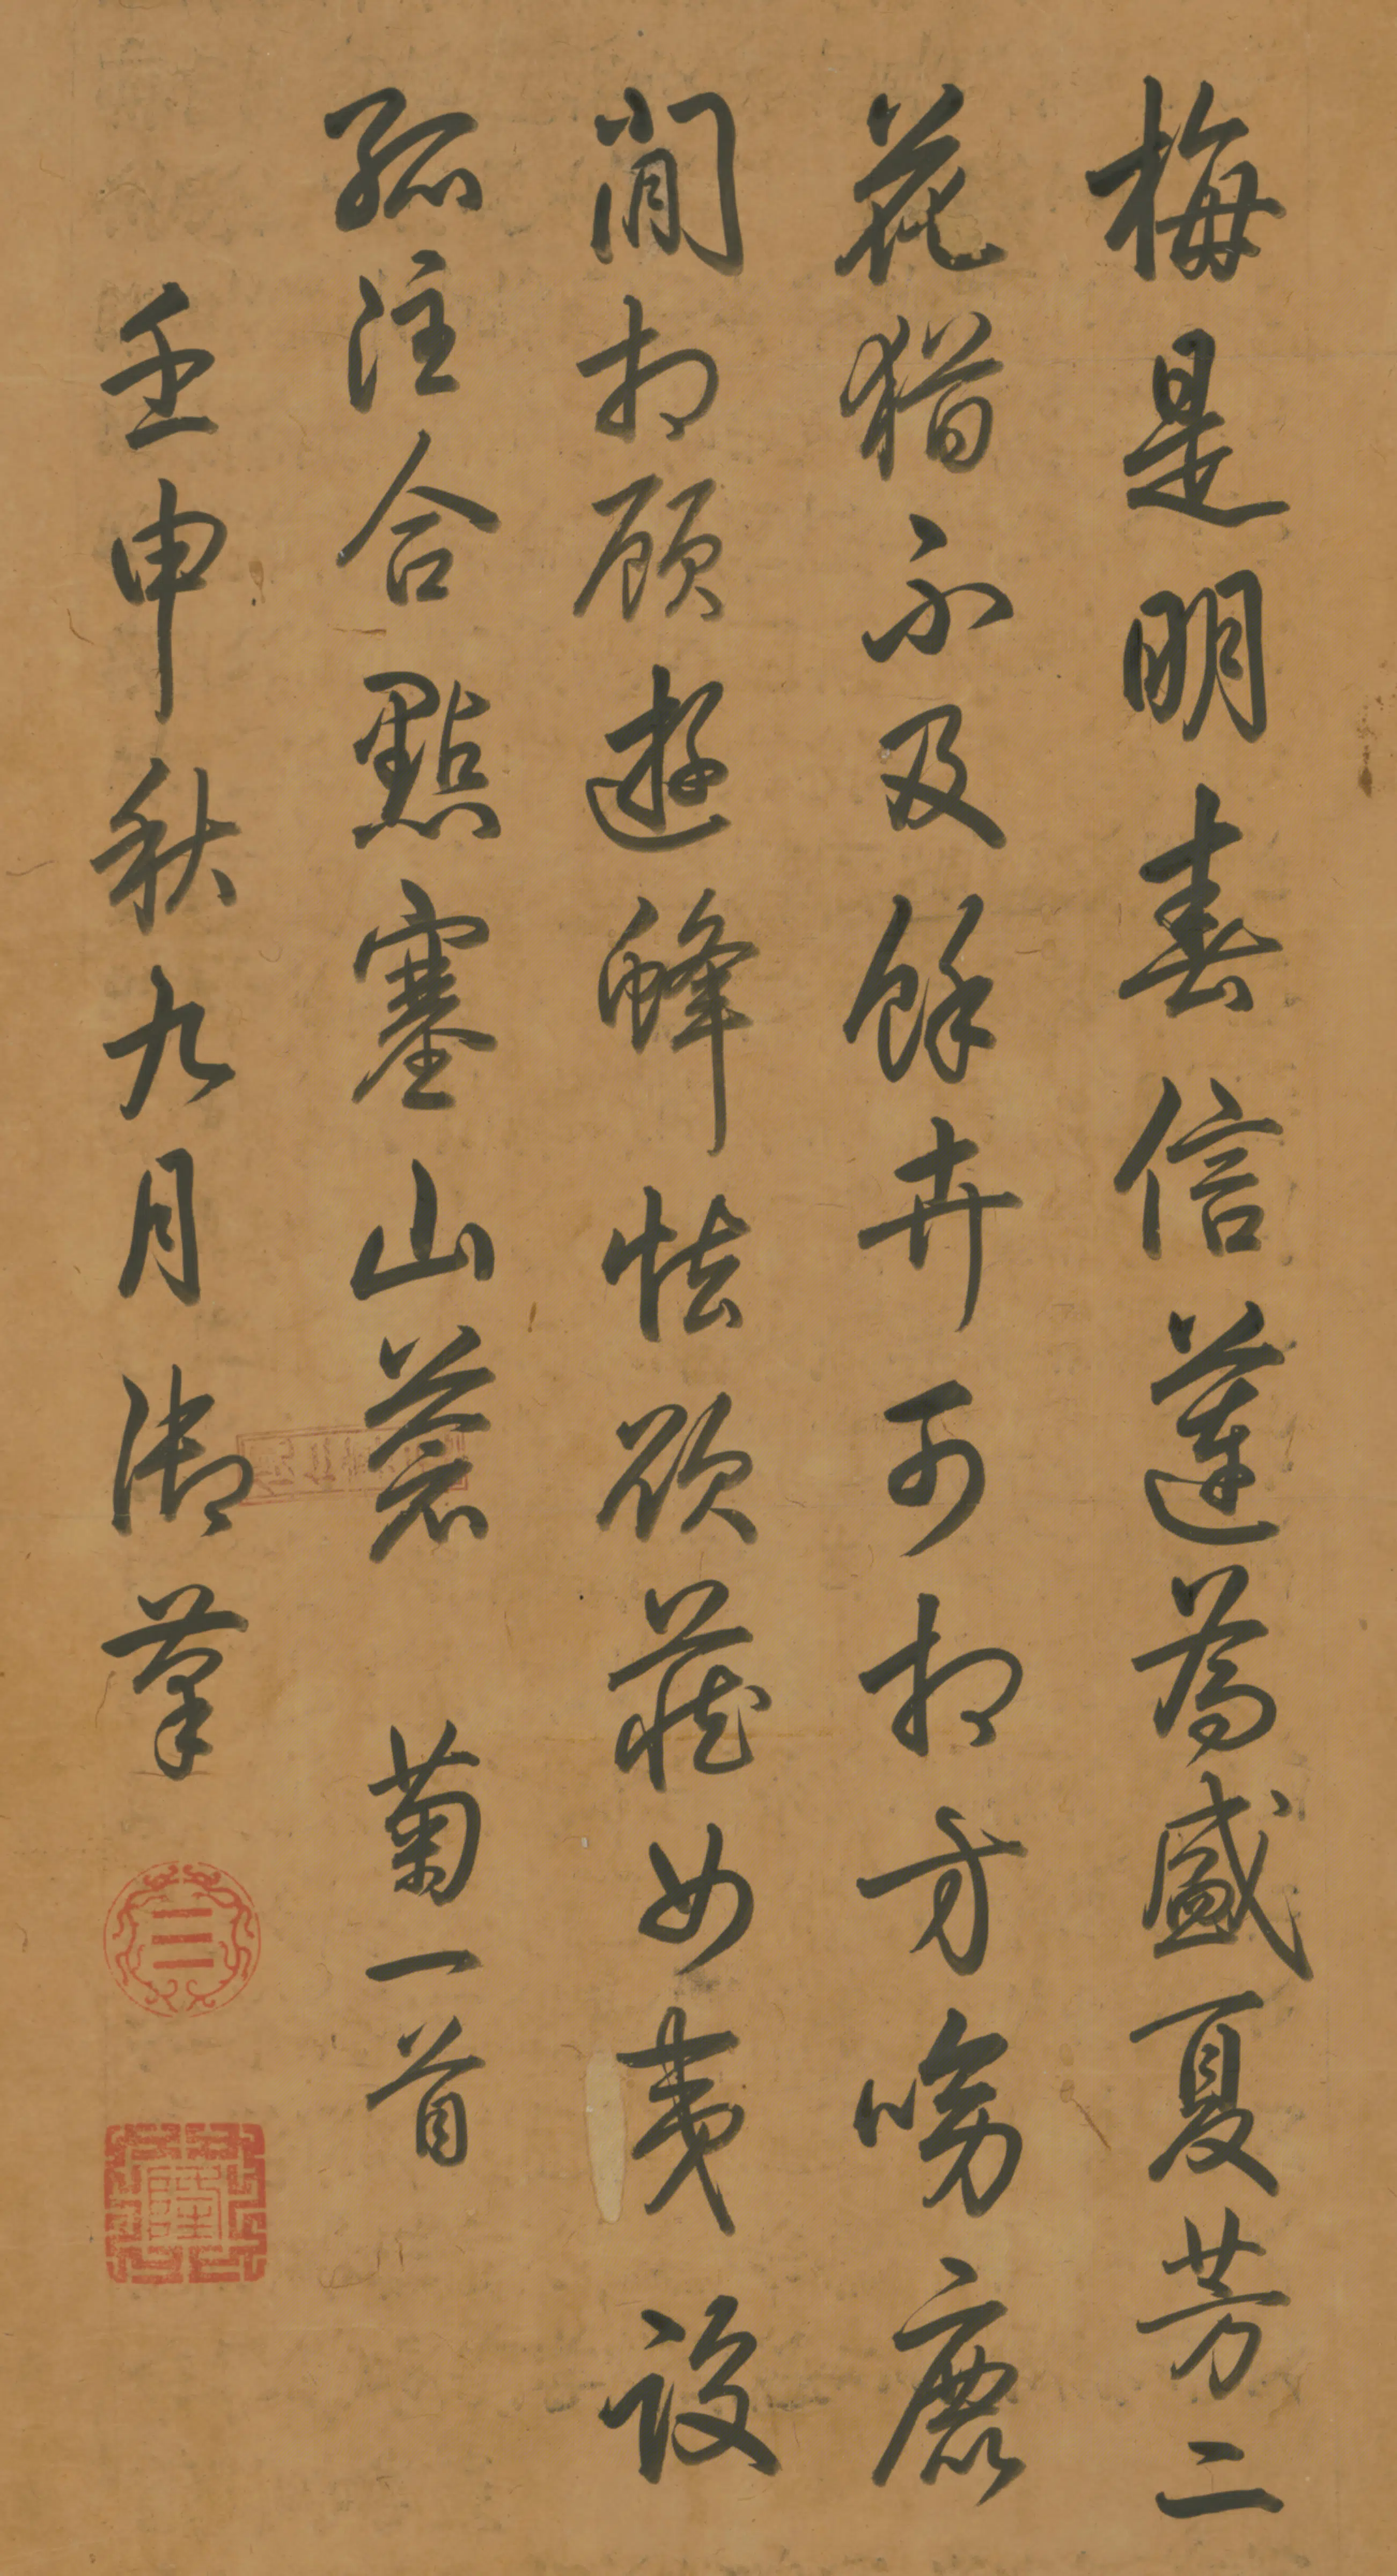 梅是明春信蓮為盛夏芳二
花猶不及餘卉可相方鹿
閒相顧遊蜂怯欲藏女夷設
孤注合點塞山蒼 菊一首
壬申秋九月御筆
☰
隆